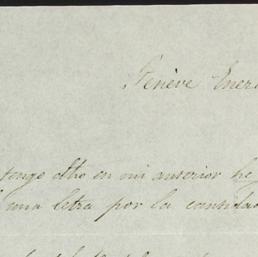 Genève Ener
tengo dho en mi anterior he
una letra por la cantidad